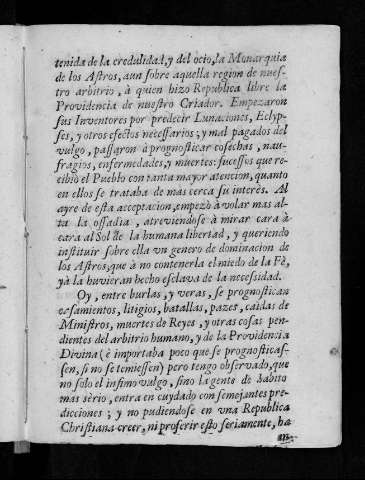 tenida de la credulidad, y del ocio, la Monarquia
de los Astros, aun sobre aquella region de nues-
tro arbitrio, à quien hizo Republica libre la
Providencia de nuestro Criador. Empezaron
sus Inventores por predecir Lunaciones, Eclyp-
ses, y otros efectos necessarios; y mal pagados del
vulgo, passaron à prognosticar cosechas, nau-
fragios, enfermedades, y muertes: sucessos que re-
cibiò el Pueblo con tanta mayor atencion, quanto
en ellos se trataba de mas cerca su interès. Al
ayre de esta acceptacion, empezò à volar mas al-
ta la ossadia, atreviendose à mirar cara à
cara al Sol de la humana libertad, y queriendo
instituir sobre ella un genero de dominacion de
los Astros, que à no contenerla el miedo de la Fè,
yà la huvieran hecho esclava de la necessidad.
Oy, entre burlas, y veras, se prognostican
casamientos, litigios, batallas, pazes, caidas de
Ministros, muertes de Reyes, y otras cosas pen-
dientes del arbitrio humano, y de la Providencia
Divina (è importaba poco que se prognosticas-
sen, si no se temiessen) pero tengo observado, que
no solo el infimo vulgo, sino la gente de habito
mas sèrio, entra en cuydado con semejantes pre-
dicciones; y no pudiendose en vna Republica
Christiana creer, ni proferir esto seriamente, ha